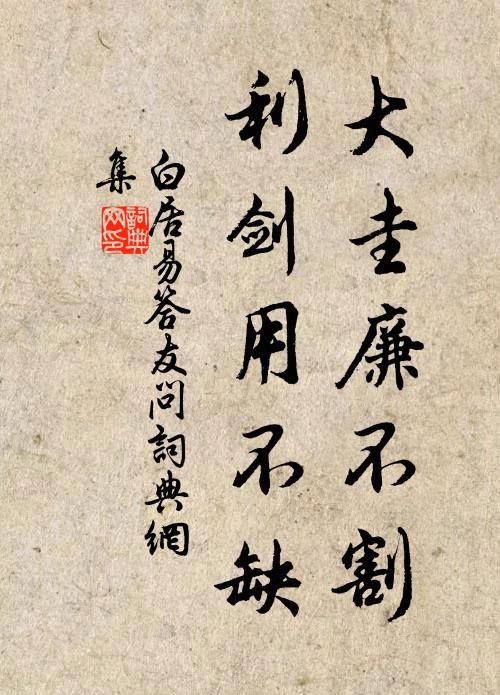 大圭廉不割
利剑用不缺
白居易答友问詞典網
集
詞典
网印